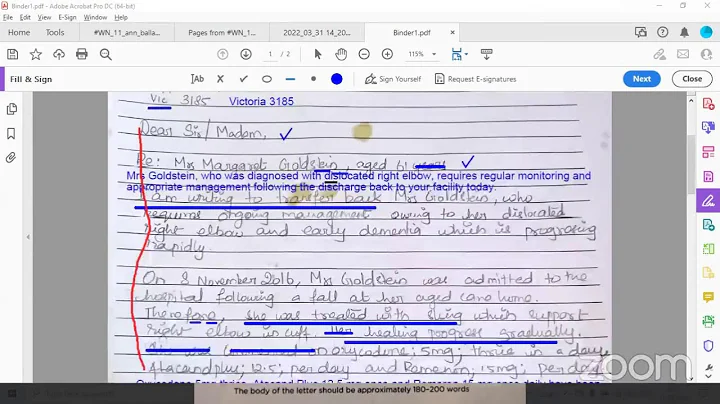 Binder1.pdf - Adobe Acrobat Pro DC (64-bit)
File Edit View E-Sign Window Help
Home Tools #WN_11_ann_balla... Pages from #WN_1... 2022_03_31 14_20... Binder1.pdf ×
1 / 2 115%
Fill & Sign Ab Sign Yourself Request E-signatures Next Close
Vic 3185 Victoria 3185
Dear Sir/Madam,
Re: Mrs Margaret Goldstein, aged 61 years
Mrs Goldstein, who was diagnosed with dislocated right elbow, requires regular monitoring and
appropriate management following the discharge back to your facility today.
I am writing to transfer back Mrs Goldstein, who
requires ongoing management owing to her dislocated
right elbow and early dementia which is progressing
rapidly.
On 8 November 2016, Mrs Goldstein was admitted to the
hospital following a fall at her aged care home.
Therefore, she was treated with sling which support
right elbow in cuff. Her healing progress gradually.
She was on oxycodone; 5mg; thrice in a day,
Atacandplus; 12.5; per day and Remenin; 15mg; per day
zoom
The body of the letter should be approximately 180-200 words